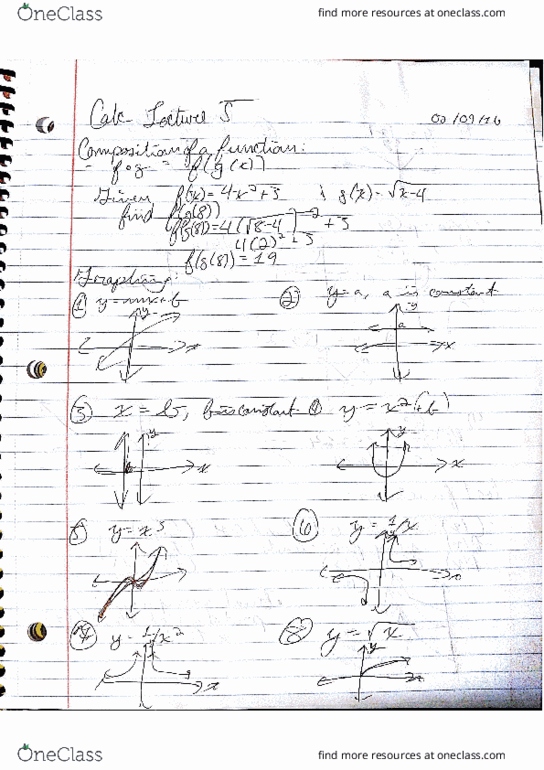 OneClass
find more resources at oneclass.com
Calc- Lecture 5
Composition of a function:
- f∘g = f(g(x))
Given f(x) = 4x²+3 ; g(x) = √x-4
find f(g(8))
f(g(8)) = 4(√8-4)² + 3
4(2)² + 3
f(g(8)) = 19
Graphing:
① y=mx+b
② y=a, a is constant
y
y
a
x
x
③ x = b, b is constant ④ y=x²(+b)
y
y
b
x
x
⑤ y=x³
⑥ y=1/x
⑦ y=1/x²
⑧ y=√x
y
x
OneClass
find more resources at oneclass.com